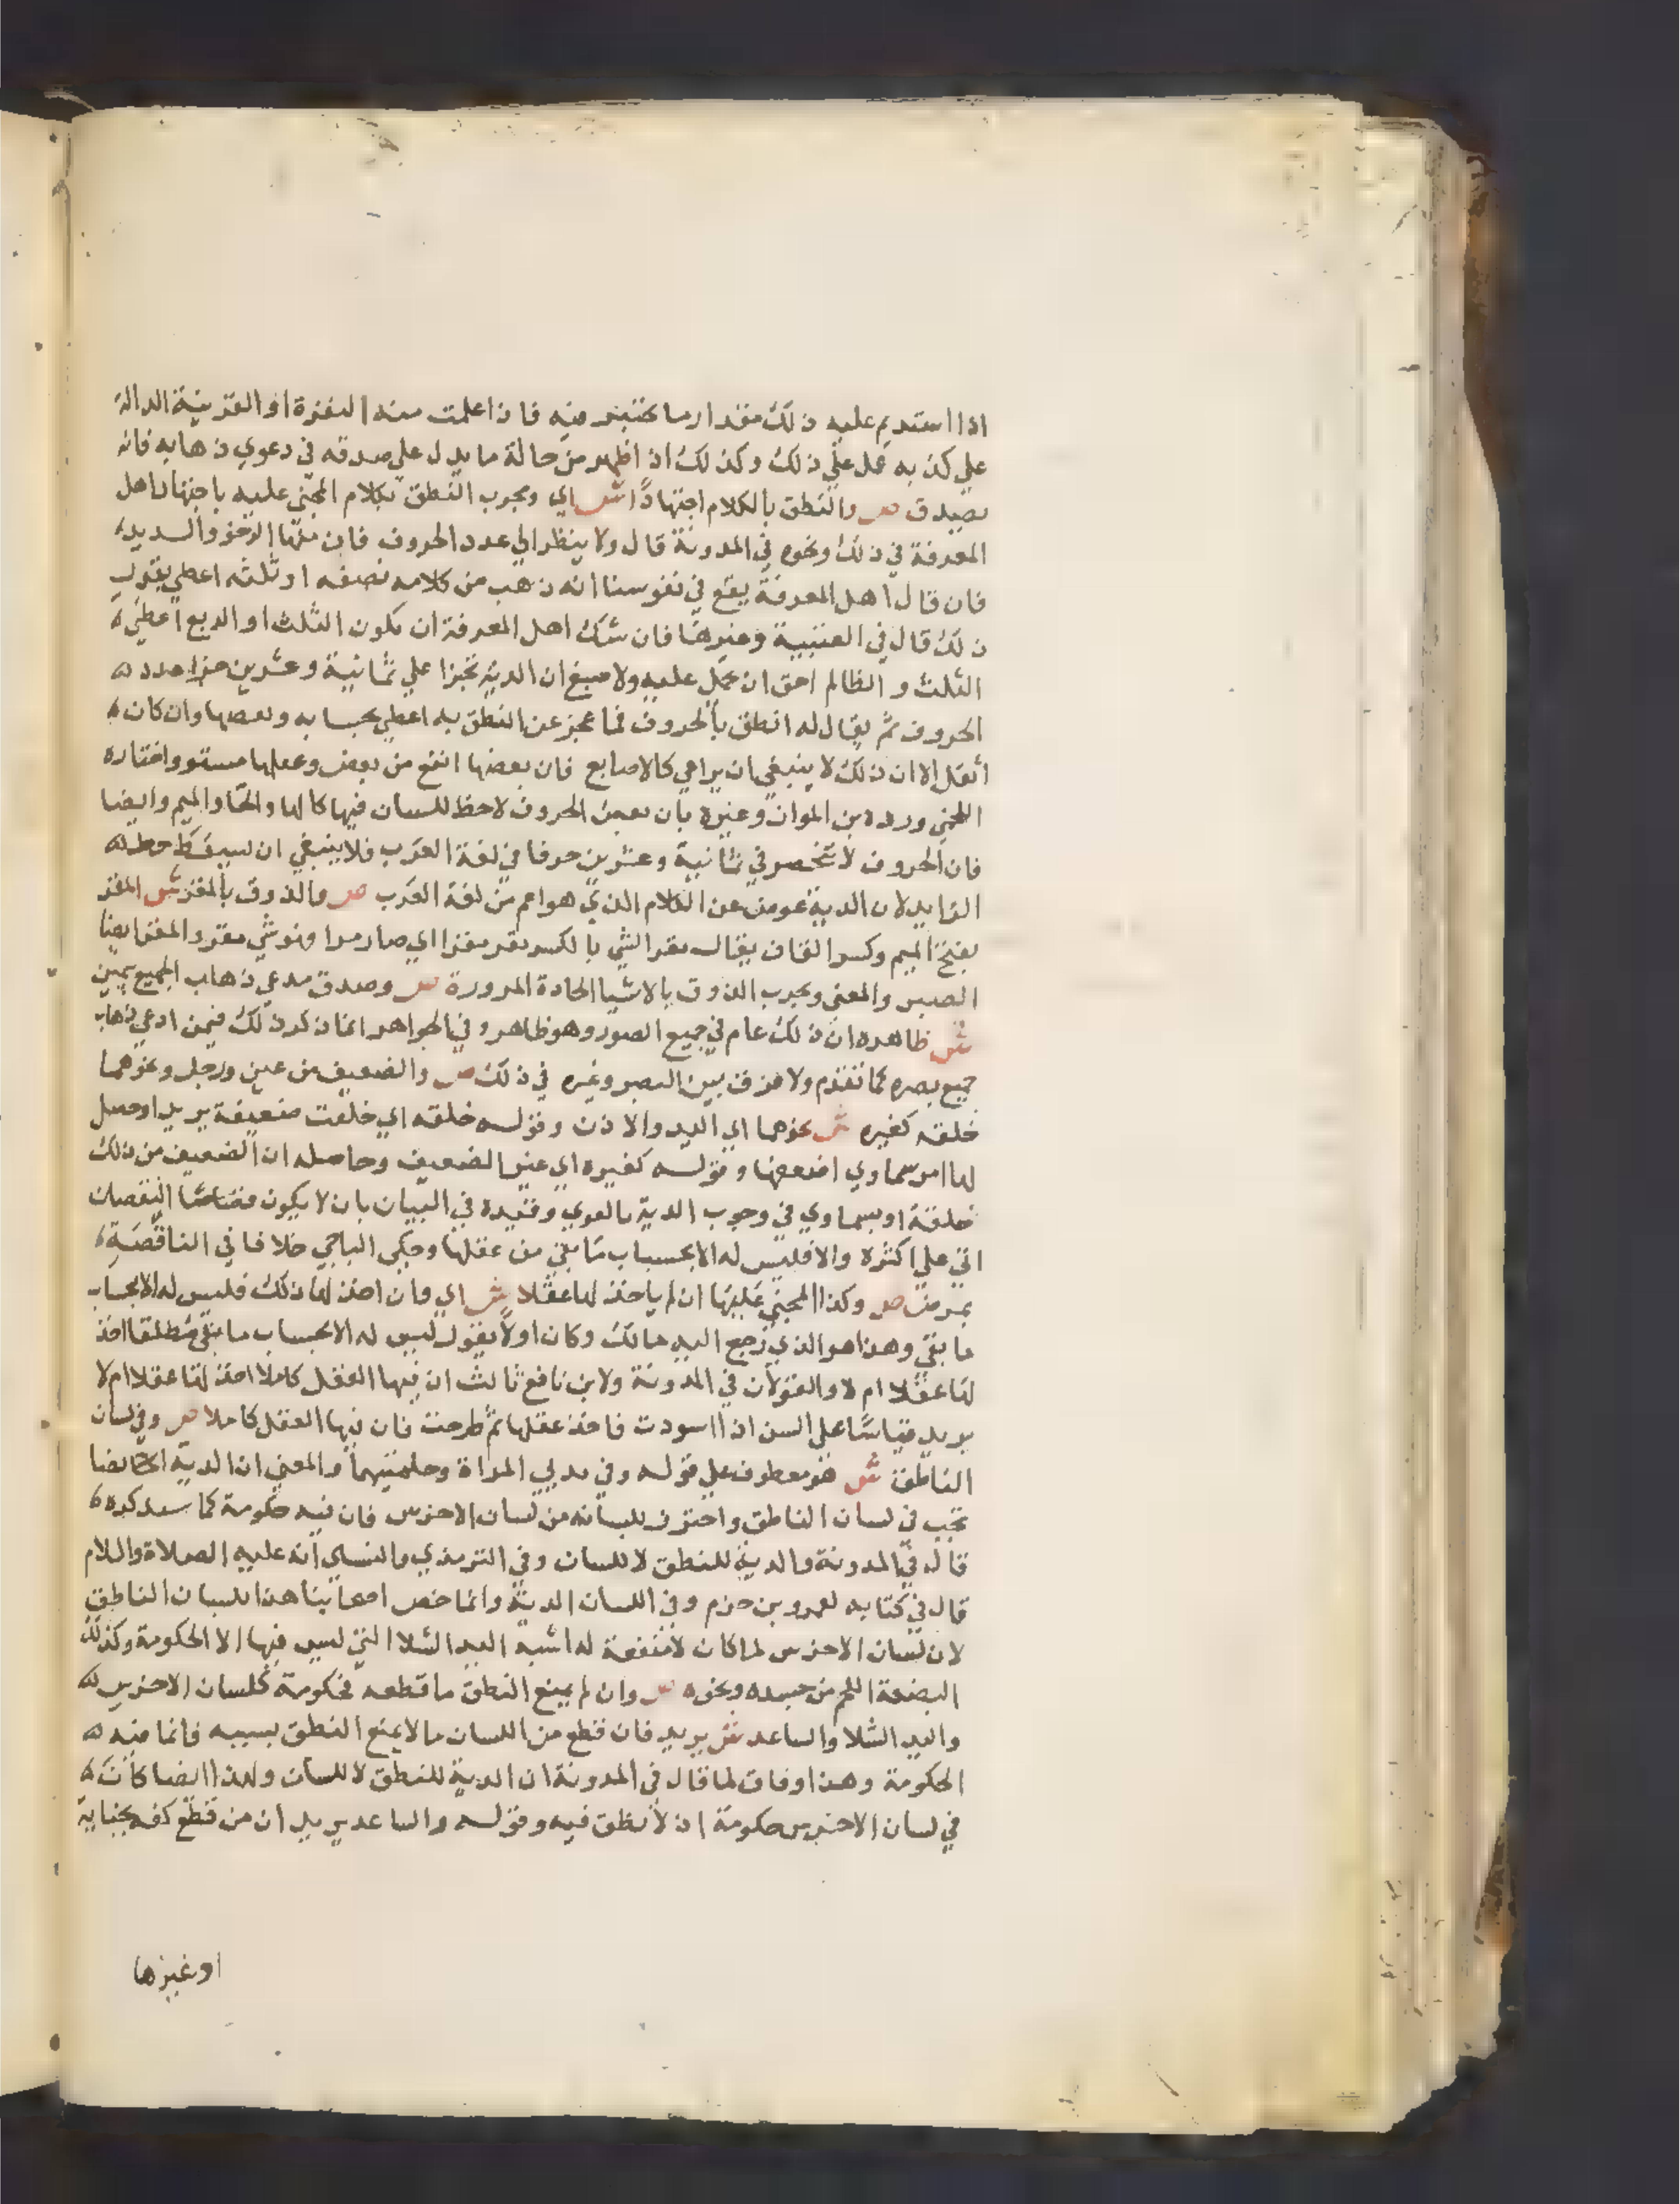 اذا استديم عليه ذلك مقدار ما يختبر فيه فاذا علمت منه النفرة او القرينة الدالة
علي كذبه عمل علي ذلك وكذلك اذا ظهر من حالة ما يدل علي صدقه في دعوي ذهابه فانه
يصدق ص والنطق بالكلام اجتهادا ش اي ويجرب النطق بكلام المجني عليه باجتهاد اهل
المعرفة في ذلك ونحوه في المدونة قال ولا ينظر الي عدد الحروف فان منها الرخو والشديد
فان قال اهل المعرفة يقع في نفوسنا انه ذهب من كلامه نصفه او ثلثه اعطي بقدر
ذلك قال في العتبية وغيرها فان شك اهل المعرفة ان يكون الثلث او الربع اعطي
الثلث و الظالم احق ان يحمل عليه ولاصبغ ان الدية تجزا علي ثمانية وعشرين جزا عدد
الحروف ثم يقال له انطق بالحروف فما عجز عن النطق به اعطي بحسابه وبعضها وان كان
اثقل الا ان ذلك لا ينبغي ان يراعي كالاصابع فان بعضها انفع من بعض وعقلها مستو واختاره
اللخمي ورده بن المواز وغيره بان بعض الحروف لاحظ للسان فيها كالها والحا والميم وايضا
فان الحروف لا تنحصر في ثمانية وعشرين حرفا في لغة العرب فلا ينبغي ان يسقط حط
الزايد لان الدية عوض عن الكلام الذي هو اعم من لغة العرب ص والذوق بالمقر ش المقر
بفتح الميم وكسر القاف يقال مقر الشي بالكسر يمقر مقرا اي صار مرا فهو شي مقر والمقر ايضا
الصبر والمعني ويجرب الذوق بالاشيا الحادة المرورة ص وصدق مدعي ذهاب الجميع بيمين
ش ظاهره ان ذلك عام في جميع الصور وهو ظاهر وفي الجواهر انما ذكر ذلك فيمن ادعي ذهاب
جميع بصره كما تقدم ولا فرق بين البصر وغيره في ذلك ص والضعيف من عين ورجل ونحوهما
خلقه كغيره ش نحوهما اي اليد والاذن وقوله خلقه اي خلقت ضعيفة يريد او حصل
لها امر سماوي اضعفها وقوله كغيره اي غير الضعيف وحاصله ان الضعيف من ذلك
خلقة او بسماوي في وجوب الدية كالقوي وقيده في البيان بان لا يكون النقصان
اتي علي اكثره والا فليس له الا بحساب ما بقي من عقلها وحكي الباجي خلافا في الناقصة
بمرض ص وكذا المجني عليها ان لم ياخذ لها عقلا ش اي فان اخذ لها ذلك فليس له الا بحساب
ما بقي وهذا هو الذي رجع اليه مالك وكان اولا يقول ليس له الا بحساب ما بقي مطلقا اخذ
لها عقلا ام لا والقولان في المدونة ولابن نافع ثالث ان فيها العقل كاملا اخذ لها عقلا ام لا
يريد قياسا علي السن اذا اسودت فاخذ عقلها ثم طرحت فان فيها العقل كاملا ص وفي لسان
الناطق ش هو معطوف علي قوله وفي ثديي المراة وحلمتيهما والمعني ان الدية ايضا
تجب في لسان الناطق واحترز بلسانه من لسان الاخرس فان فيه حكومة كما سيذكره
قال في المدونة والدية للنطق لا للسان وفي الترمذي والنسائي انه عليه الصلاة والسلام
قال في كتابه لعمرو بن حزم وفي اللسان الدية وانما خص اصحابنا هذا بلسان الناطق
لان لسان الاخرس لما كان لا منفعة له اشبه اليد الشلا التي ليس فيها الا الحكومة وكذلك
البضعة اللحم من جسده ونحوه ص وان لم يمنع النطق ما قطعه فحكومة كلسان الاخرس
واليد الشلا والساعد ش يريد فان قطع من اللسان ما لا يمنع النطق بسببه فانما فيه
الحكومة وهذا وفاق لما قال في المدونة ان الدية للنطق لا للسان ولهذا ايضا كانت
في لسان الاخرس حكومة اذ لا نطق فيه وقوله والساعد يريد ان من قطع كفه بجناية
او غيرها